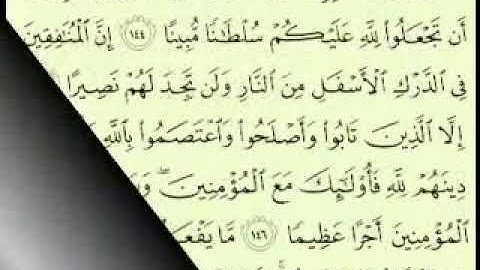 أَن تَجْعَلُوا۟ لِلَّهِ عَلَيْكُمْ سُلْطَٰنًا مُّبِينًا ١٤٤ إِنَّ ٱلْمُنَٰفِقِينَ
فِى ٱلدَّرْكِ ٱلْأَسْفَلِ مِنَ ٱلنَّارِ وَلَن تَجِدَ لَهُمْ نَصِيرًا
إِلَّا ٱلَّذِينَ تَابُوا۟ وَأَصْلَحُوا۟ وَٱعْتَصَمُوا۟ بِٱللَّهِ
دِينَهُمْ لِلَّهِ فَأُو۟لَٰٓئِكَ مَعَ ٱلْمُؤْمِنِينَ ۖ
ٱلْمُؤْمِنِينَ أَجْرًا عَظِيمًا ١٤٦ مَّا يَفْعَ